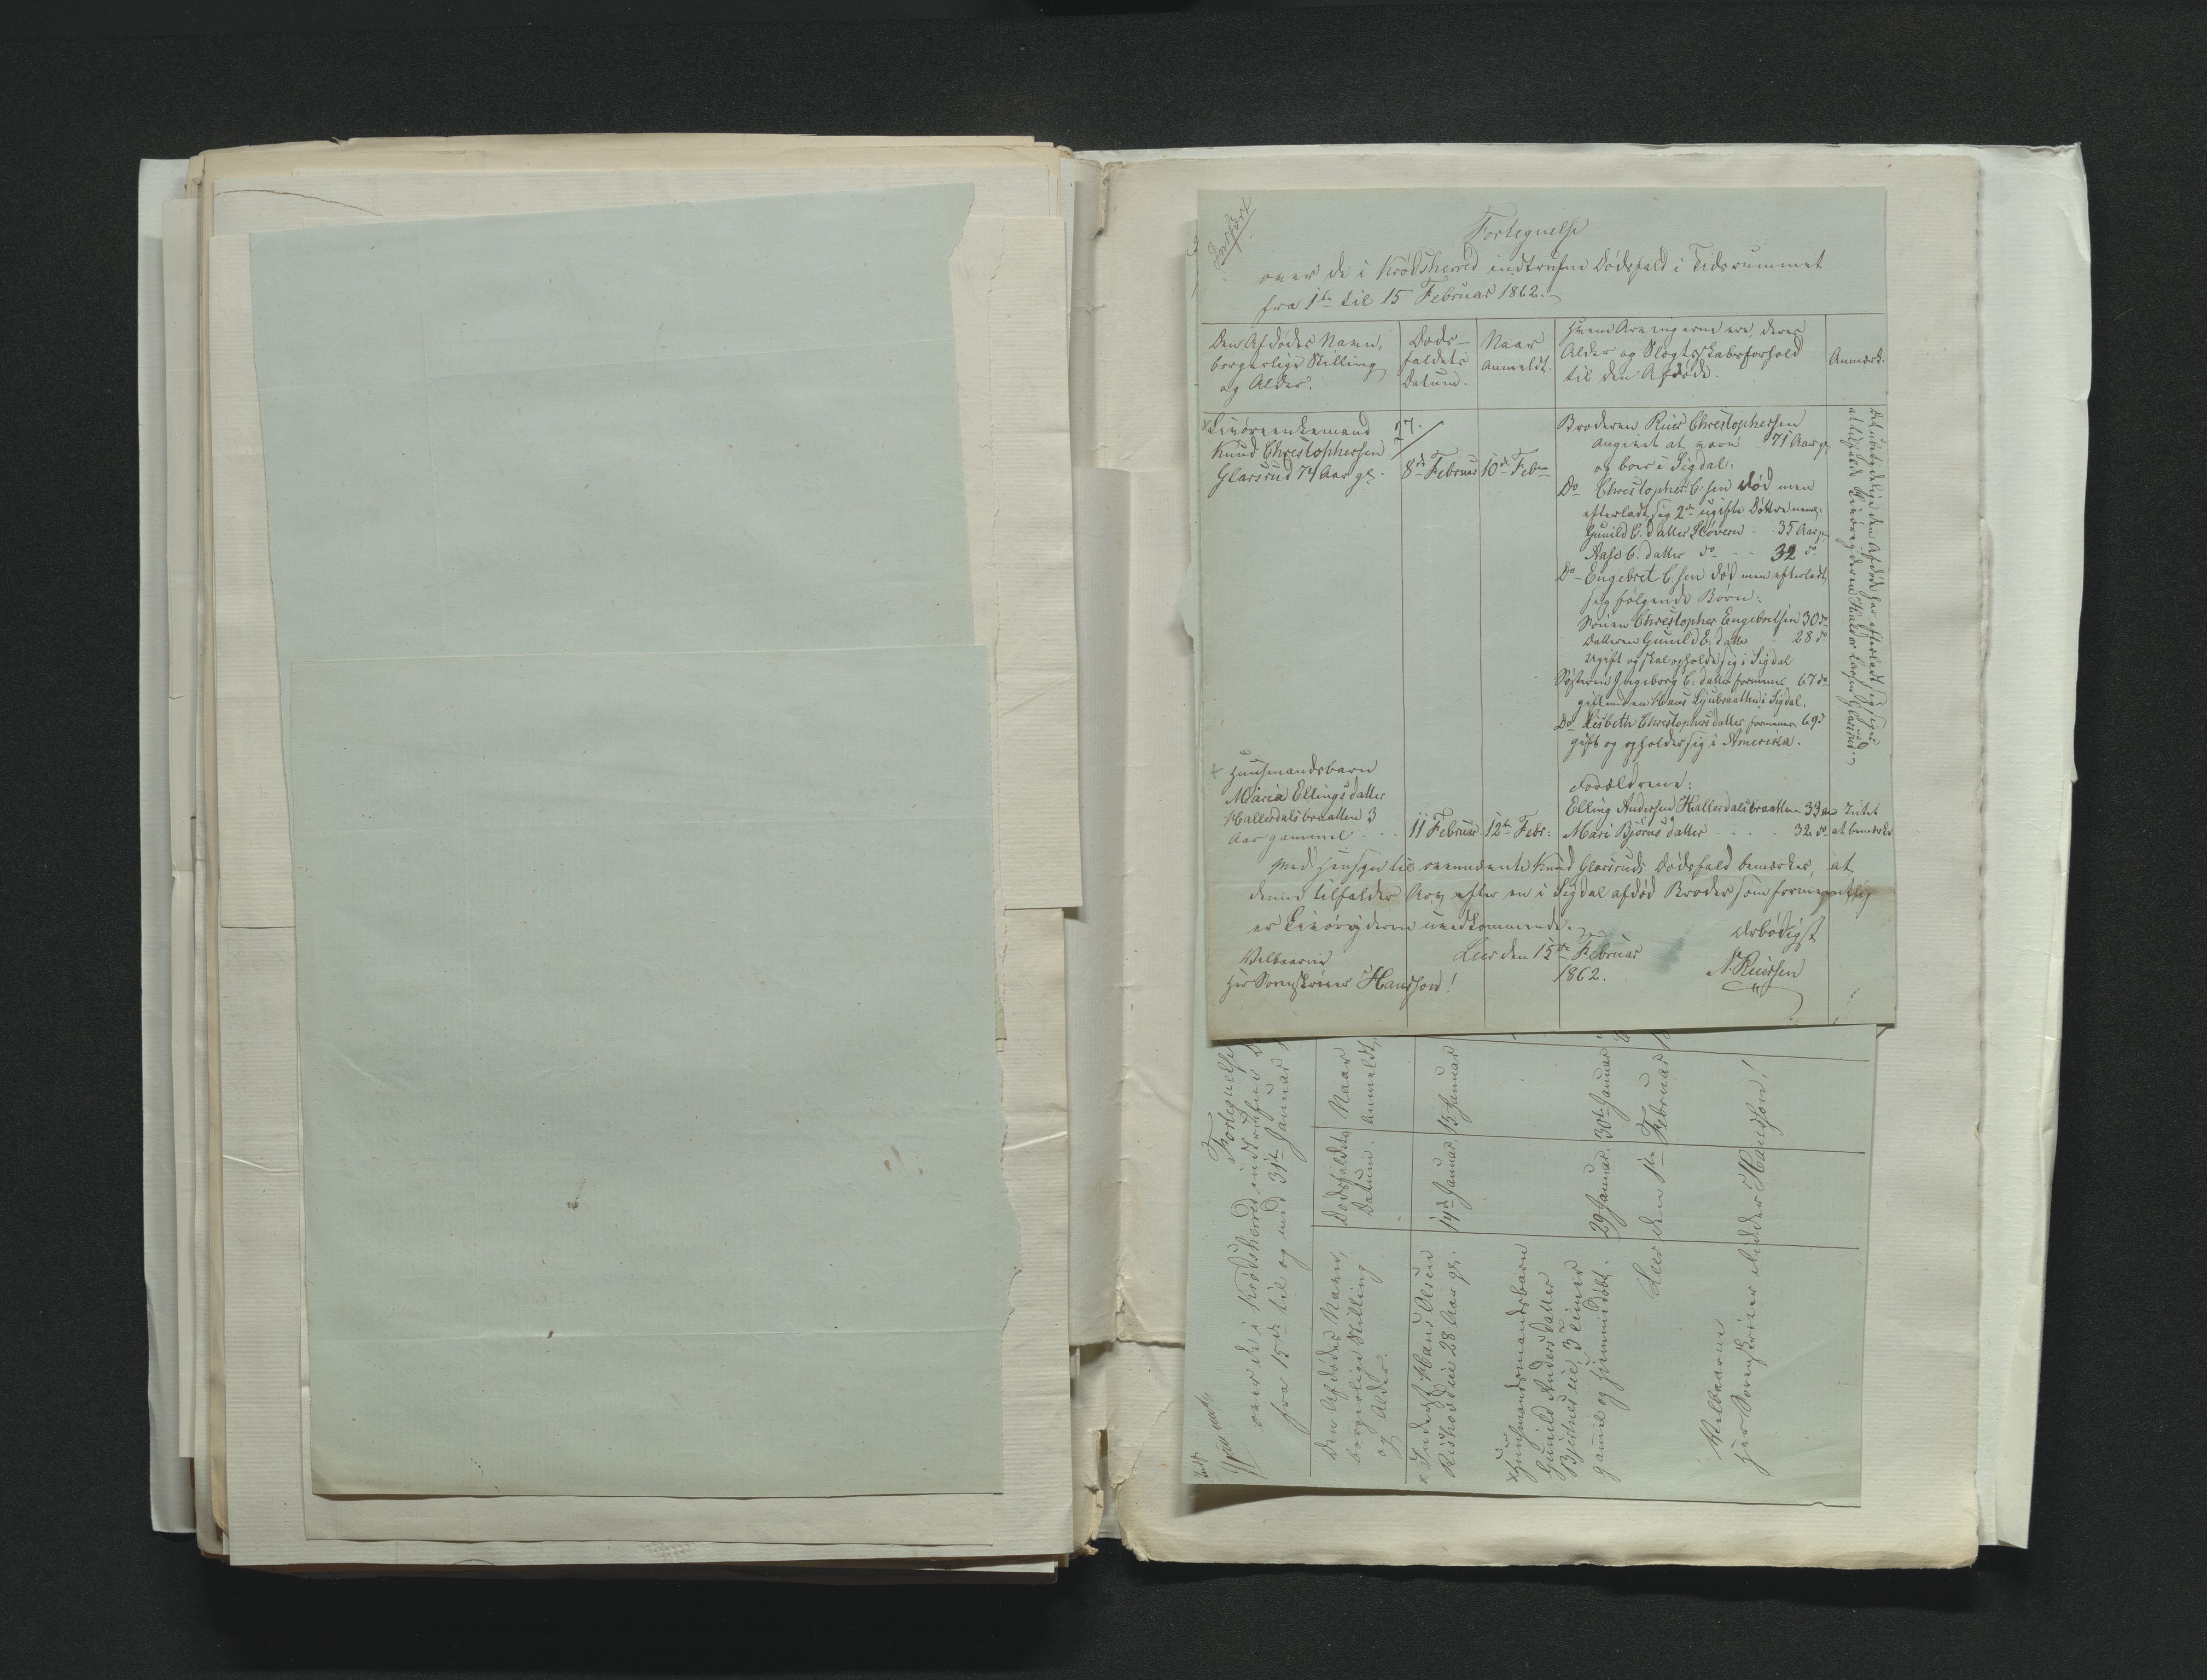 Indført
Fortegnelse
over de i Krødsherred indtrufne Dødsfald i Tidsrummet
fra 1te til 15 Februar 1862.
Den Afdødes Navn,
borgerlige Stilling
og Alder.
Døds-
faldets
Datum.
Naar
anmeldt.
Hvem Arvingerne ere, deres
Alder og Slægtsskabsforhold
til den Afdøde.
Anmærk.
Livøreenkemand
Knud Christophersen
Glarsrud 74 Aar gl.
8de Februar
10de Febr
Broderen Ruus Christophersen
angivet at være 71 Aar gl.
og boer i Sigdal.
Do Christopher C.sen død men
efterladt sig 2de ugifte Døttre nemlig
Gunild C.datter 35 Aar gl.
Aase C.datter do 32 do
Do Engebret C.sen død men efterladt
sig følgende Børn:
Sønnen Christopher Engebretsen 30 do
Datteren Gunild E.datter 28 do
ugift og skal opholde sig i Sigdal
Søsteren Ingeborg C.datter formener 67 do
gift med Hans i Sigdal.
Do Lisbeth Christophersdatter formener 69
gift og opholder sig i Amerika.
Det ubetydelige den Afdøde har efterladt sig siges
at tilfalde Livøregiveren Glarsrud.
Huusmandsbarn
Maria Ellingsdatter
Hallerdalsbraatten 3
Aar gammel
11 Februar
12te Febr.
Forældrene:
Elling Andersen Hallerdalsbraatten 33 Aar
Mari Bjørnsdatter 32 do
Intet
at bemærke
Med Hensyn til ovennævnte Knud Glarsruds Dødsfald bemærkes, at
denne tilfalder Arv efter en i Sigdal afdød Broder som formentlig
er Livøregiveren uvedkommende.
Leer den 15de Februar
1862.
Ærbødigst
N. Ruersen
Velbaarne
Herr Sorenskriver Hansson!
Fortegnelse
over de i Krødsherred indtrufne
fra 15de til og med 31te Januar
Den Afdødes Navn,
borgerlige Stilling
og Alder.
Dødsfaldets
Datum.
Naar
anmeldt.
Inderst Hans Olsen
28 Aar gl.
14de Januar
15 Januar
Huusmandsbarn
Gunild Andersdatter
3 Timer
gammel og hjemmedøbt.
29 Januar
30te Januar
Leer den 1te Februar
Velbaarne
Herr Sorenskriver Ridder Hansson!